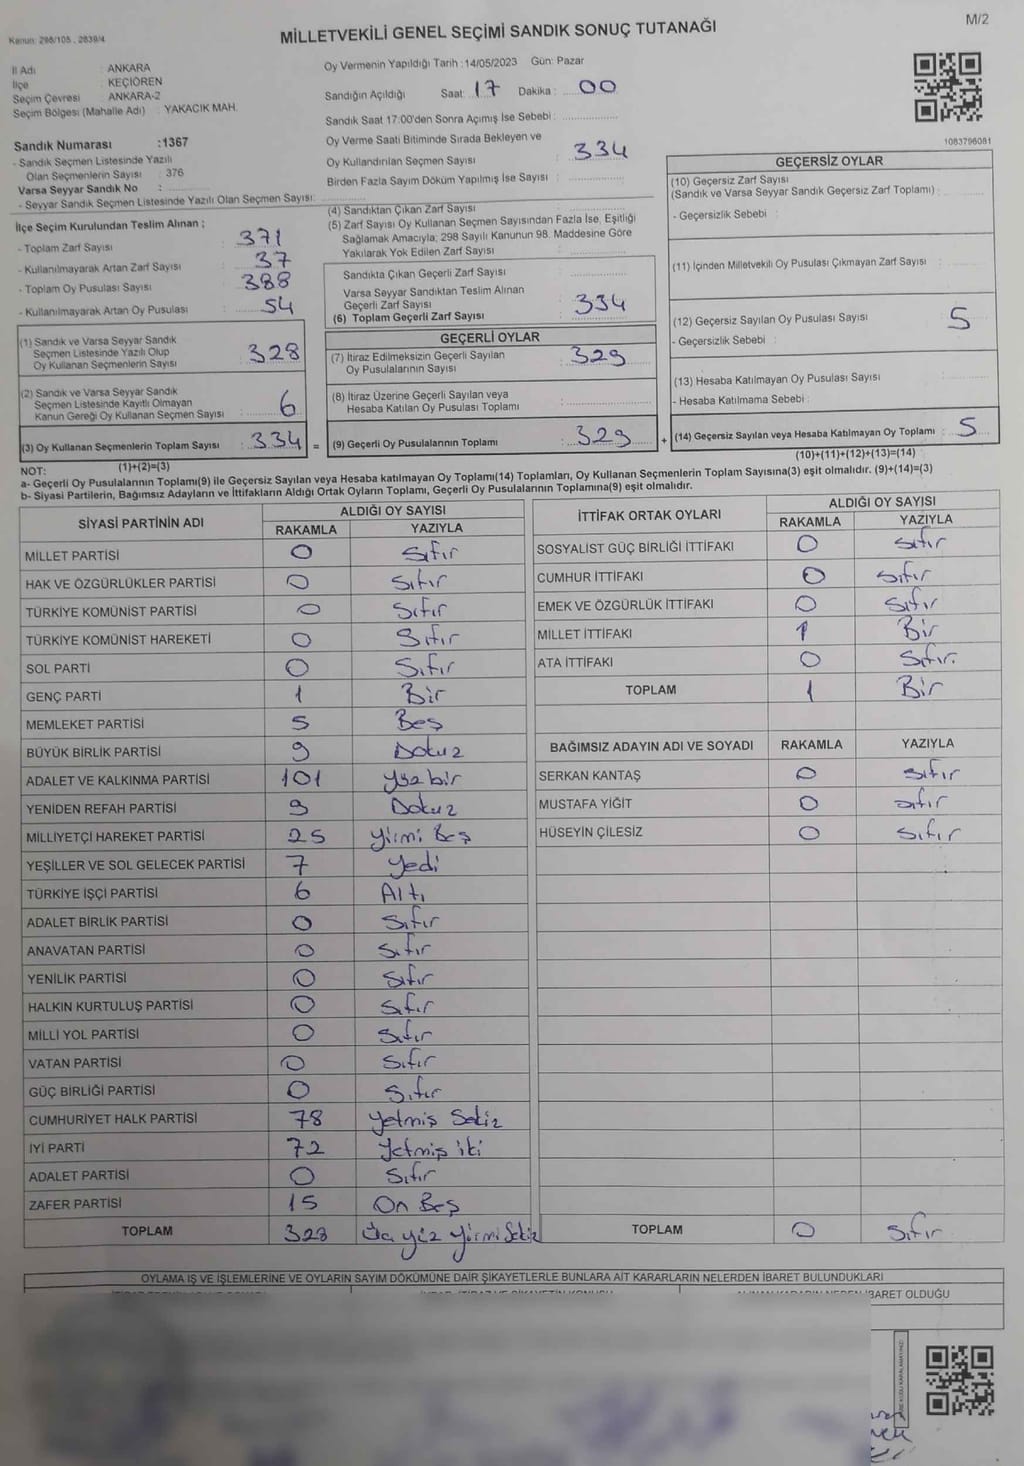 M/2
Kanun: 298/105, 2839/4
MİLLETVEKİLİ GENEL SEÇİMİ SANDIK SONUÇ TUTANAĞI
İl Adı : ANKARA
İlçe : KEÇİÖREN
Seçim Çevresi : ANKARA-2
Seçim Bölgesi (Mahalle Adı) : YAKACIK MAH.
Sandık Numarası :1367
- Sandık Seçmen Listesinde Yazılı
Olan Seçmenlerin Sayısı : 376
Varsa Seyyar Sandık No :
- Seyyar Sandık Seçmen Listesinde Yazılı Olan Seçmen Sayısı:
Oy Vermenin Yapıldığı Tarih :14/05/2023 Gün: Pazar
Sandığın Açıldığı Saat: 17 Dakika : 00
Sandık Saat 17:00'den Sonra Açımış İse Sebebi :
Oy Verme Saati Bitiminde Sırada Bekleyen ve
Oy Kullandırılan Seçmen Sayısı : 334
Birden Fazla Sayım Döküm Yapılmış İse Sayısı :
1083796081
İlçe Seçim Kurulundan Teslim Alınan ;
- Toplam Zarf Sayısı : 371
- Kullanılmayarak Artan Zarf Sayısı : 37
- Toplam Oy Pusulası Sayısı : 388
- Kullanılmayarak Artan Oy Pusulası : 54
(1) Sandık ve Varsa Seyyar Sandık
Seçmen Listesinde Yazılı Olup
Oy Kullanan Seçmenlerin Sayısı : 328
(2) Sandık ve Varsa Seyyar Sandık
Seçmen Listesinde Kayıtlı Olmayan
Kanun Gereği Oy Kullanan Seçmen Sayısı : 6
(3) Oy Kullanan Seçmenlerin Toplam Sayısı : 334 =
(1)+(2)=(3)
(4) Sandıktan Çıkan Zarf Sayısı :
(5) Zarf Sayısı Oy Kullanan Seçmen Sayısından Fazla İse, Eşitliği
Sağlamak Amacıyla, 298 Sayılı Kanunun 98. Maddesine Göre
Yakılarak Yok Edilen Zarf Sayısı :
Sandıkta Çıkan Geçerli Zarf Sayısı :
Varsa Seyyar Sandıktan Teslim Alınan
Geçerli Zarf Sayısı :
(6) Toplam Geçerli Zarf Sayısı : 334
GEÇERLİ OYLAR
(7) İtiraz Edilmeksizin Geçerli Sayılan
Oy Pusulalarının Sayısı : 329
(8) İtiraz Üzerine Geçerli Sayılan veya
Hesaba Katılan Oy Pusulası Toplamı :
(9) Geçerli Oy Pusulalarının Toplamı : 329 +
GEÇERSİZ OYLAR
(10) Geçersiz Zarf Sayısı
(Sandık ve Varsa Seyyar Sandık Geçersiz Zarf Toplamı) :
- Geçersizlik Sebebi :
(11) İçinden Milletvekili Oy Pusulası Çıkmayan Zarf Sayısı :
(12) Geçersiz Sayılan Oy Pusulası Sayısı : 5
- Geçersizlik Sebebi :
(13) Hesaba Katılmayan Oy Pusulası Sayısı :
- Hesaba Katılmama Sebebi :
(14) Geçersiz Sayılan veya Hesaba Katılmayan Oy Toplamı : 5
(10)+(11)+(12)+(13)=(14)
NOT:
a- Geçerli Oy Pusulalarının Toplamı(9) ile Geçersiz Sayılan veya Hesaba katılmayan Oy Toplamı(14) Toplamları, Oy Kullanan Seçmenlerin Toplam Sayısına(3) eşit olmalıdır. (9)+(14)=(3)
b- Siyasi Partilerin, Bağımsız Adayların ve İttifakların Aldığı Ortak Oyların Toplamı, Geçerli Oy Pusulalarının Toplamına(9) eşit olmalıdır.
SİYASİ PARTİNİN ADI ALDIĞI OY SAYISI
RAKAMLA YAZIYLA
MİLLET PARTİSİ 0 Sıfır
HAK VE ÖZGÜRLÜKLER PARTİSİ 0 Sıfır
TÜRKİYE KOMÜNİST PARTİSİ 0 Sıfır
TÜRKİYE KOMÜNİST HAREKETİ 0 Sıfır
SOL PARTİ 0 Sıfır
GENÇ PARTİ 1 Bir
MEMLEKET PARTİSİ 5 Beş
BÜYÜK BİRLİK PARTİSİ 9 Dokuz
ADALET VE KALKINMA PARTİSİ 101 Yüzbir
YENİDEN REFAH PARTİSİ 9 Dokuz
MİLLİYETÇİ HAREKET PARTİSİ 25 Yirmi Beş
YEŞİLLER VE SOL GELECEK PARTİSİ 7 Yedi
TÜRKİYE İŞÇİ PARTİSİ 6 Altı
ADALET BİRLİK PARTİSİ 0 Sıfır
ANAVATAN PARTİSİ 0 Sıfır
YENİLİK PARTİSİ 0 Sıfır
HALKIN KURTULUŞ PARTİSİ 0 Sıfır
MİLLİ YOL PARTİSİ 0 Sıfır
VATAN PARTİSİ 0 Sıfır
GÜÇ BİRLİĞİ PARTİSİ 0 Sıfır
CUMHURİYET HALK PARTİSİ 78 Yetmiş Sekiz
İYİ PARTİ 72 Yetmiş iki
ADALET PARTİSİ 0 Sıfır
ZAFER PARTİSİ 15 On Beş
TOPLAM 328 Üç yüz yirmi Sekiz
İTTİFAK ORTAK OYLARI ALDIĞI OY SAYISI
RAKAMLA YAZIYLA
SOSYALİST GÜÇ BİRLİĞİ İTTİFAKI 0 Sıfır
CUMHUR İTTİFAKI 0 Sıfır
EMEK VE ÖZGÜRLÜK İTTİFAKI 0 Sıfır
MİLLET İTTİFAKI 1 Bir
ATA İTTİFAKI 0 Sıfır.
TOPLAM 1 Bir
BAĞIMSIZ ADAYIN ADI VE SOYADI RAKAMLA YAZIYLA
SERKAN KANTAŞ 0 Sıfır
MUSTAFA YİĞİT 0 Sıfır
HÜSEYİN ÇİLESİZ 0 Sıfır
TOPLAM 0 Sıfır
OYLAMA İŞ VE İŞLEMLERİNE VE OYLARIN SAYIM DÖKÜMÜNE DAİR ŞİKAYETLERLE BUNLARA AİT KARARLARIN NELERDEN İBARET BULUNDUKLARI
İBARET OLDUĞU